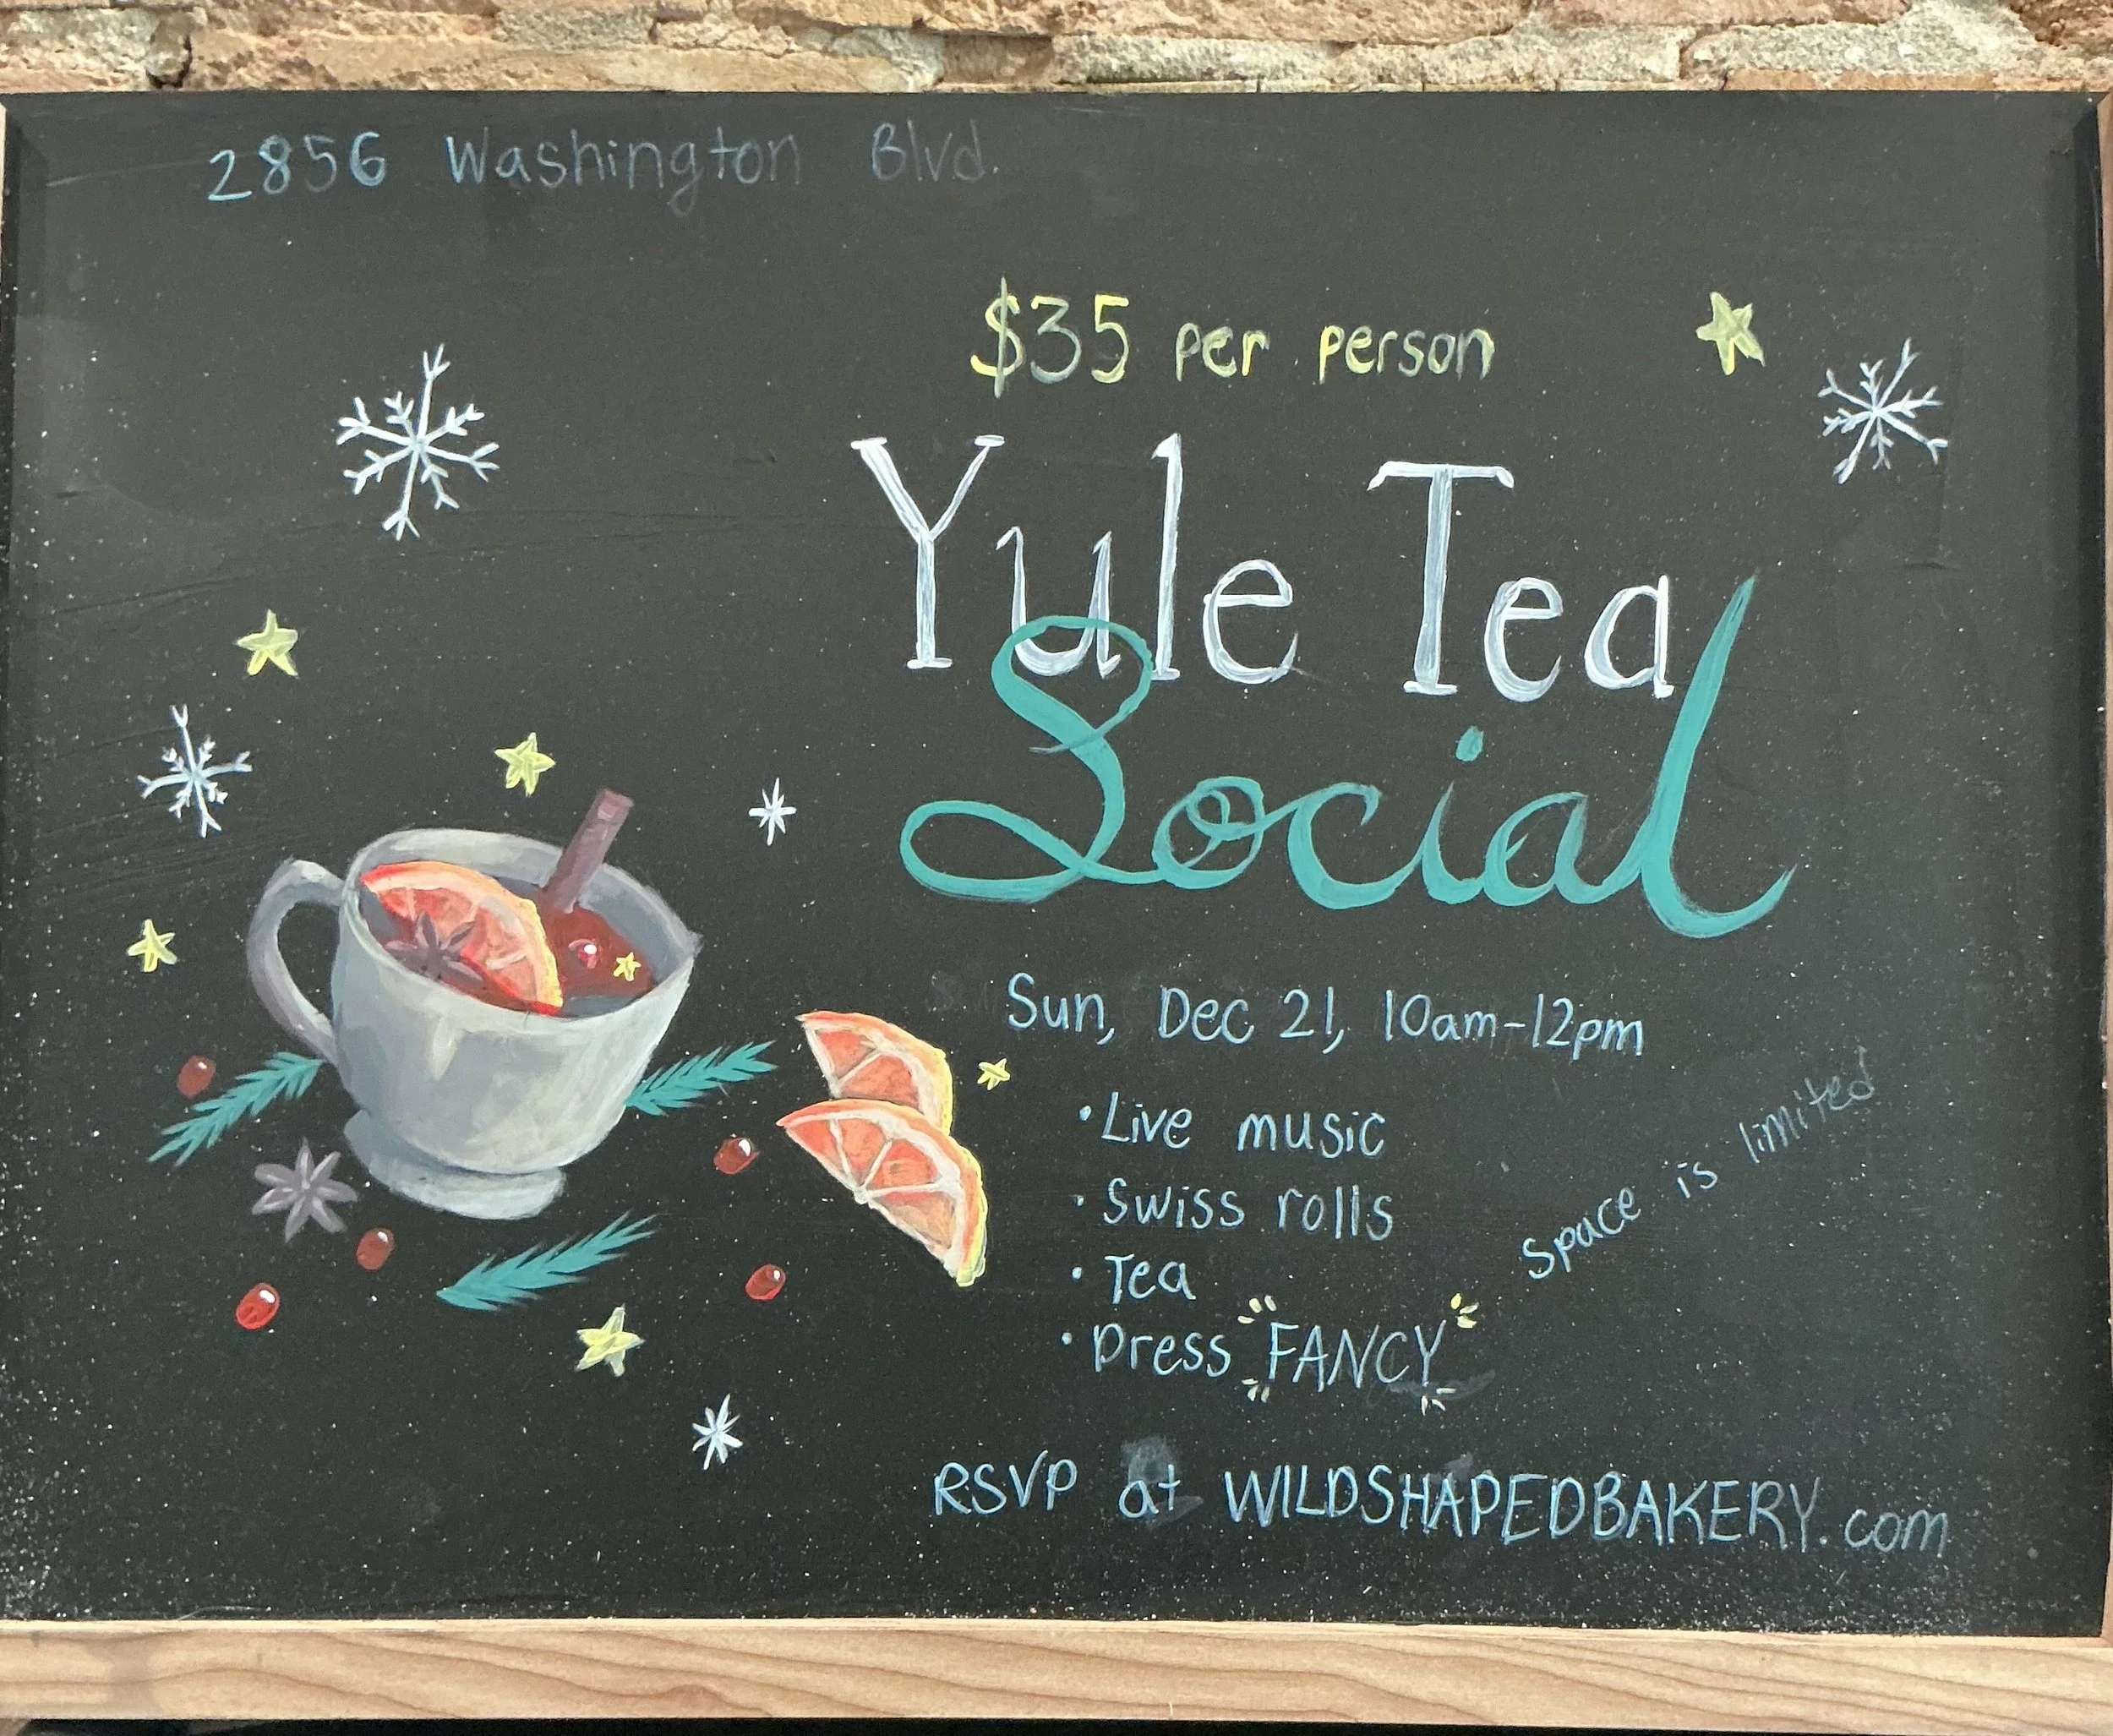 2856 Washington Blvd.
$35 per person
Yule Tea
Social
Sun, Dec 21, 10am-12pm
• Live music
• Swiss rolls
• Tea
• Dress FANCY
Space is limited
RSVP at WILDSHAPEDBAKERY.com